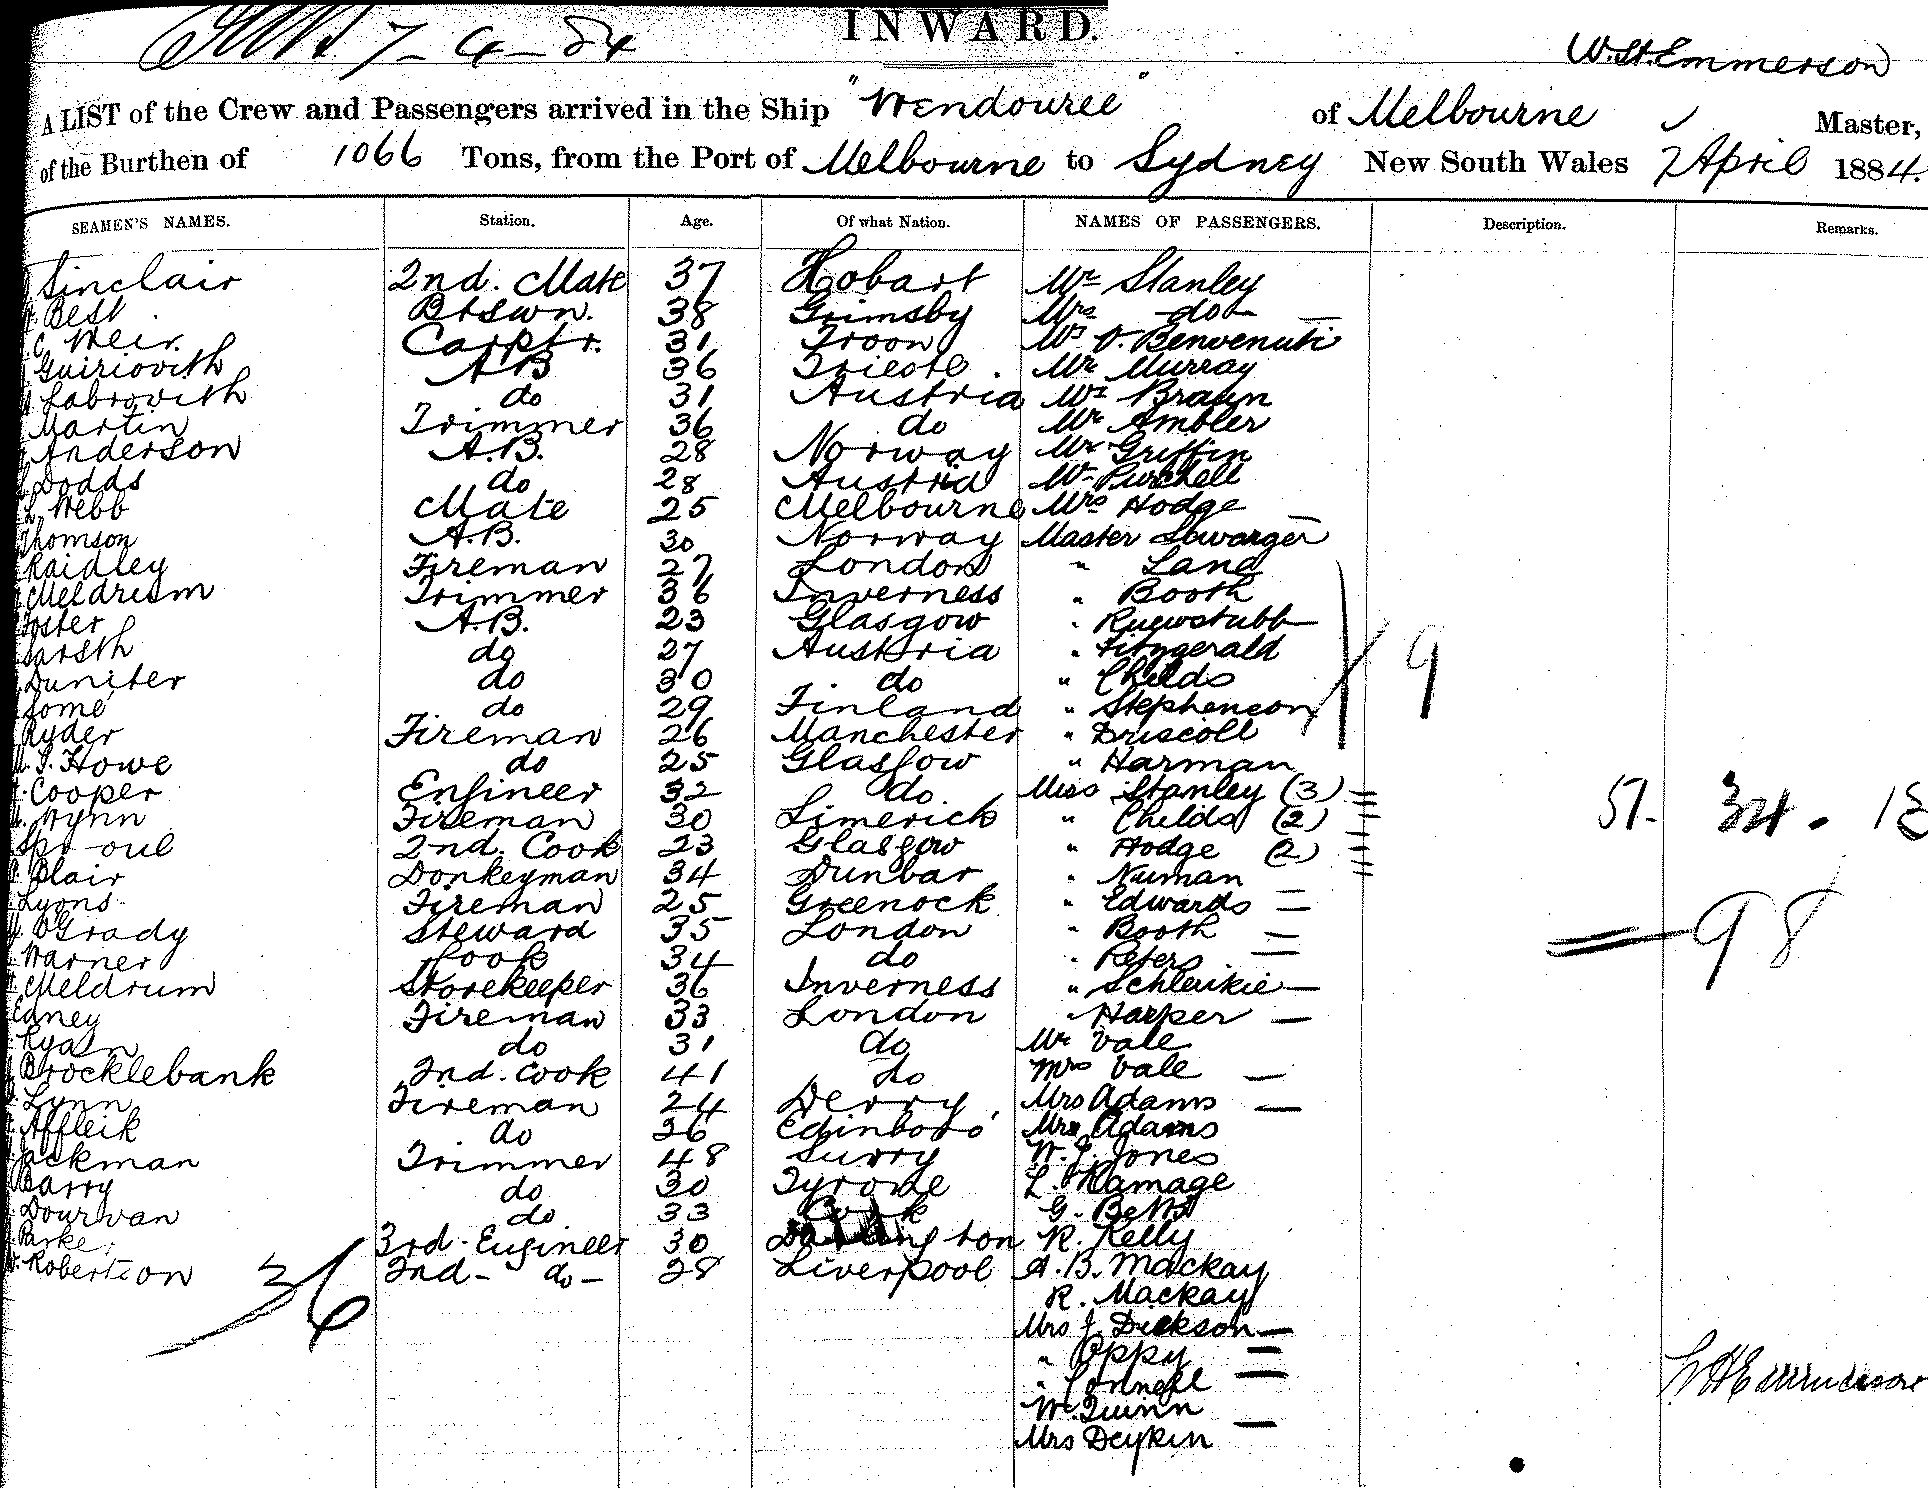 7-4-84
INWARD.
W. H. Emmerson
A LIST of the Crew and Passengers arrived in the Ship "Wendouree" of Melbourne Master,
of the Burthen of 1066 Tons, from the Port of Melbourne to Sydney New South Wales 7 April 1884.
SEAMEN'S NAMES. Station. Age. Of what Nation. NAMES OF PASSENGERS. Description. Remarks.
Sinclair 2nd. Mate 37 Hobart Mr Stanley
Best Btswn. 38 Grimsby Mrs do
C Weir. Carptr. 31 Troon Mr V. Benvenuti
Guiriovith A B 36 Trieste. Mr Murray
Labrovith do 31 Austria Mr Braun
Martin Trimmer 36 do Mr Ambler
Anderson A.B. 28 Norway Mr Griffin
Dodds do 28 Austria Mr Purchell
Webb Mate 25 Melbourne Mrs Hodge
Thomson A.B. 30 Norway Master
Raidley Fireman 27 London " Lane
Meldrum Trimmer 36 Inverness " Booth
Foster A.B. 23 Glasgow "
do 27 Austria " Fitzgerald
Duniter do 30 do " Childs
Lome do 29 Finland " Stephenson
Ryder Fireman 26 Manchester " Driscoll
J. Howe do 25 Glasgow " Harman
9
Cooper Engineer 32 do. Miss Stanley (3)
Wynn Fireman 30 Limerick " Childs (2)
51. 34. 13
Sproul 2nd. Cook 23 Glasgow " Hodge (2)
Blair Donkeyman 34 Dunbar " Numan
Lyons Fireman 25 Greenock " Edwards
O'Grady Steward 35 London " Booth
98
Warner Cook 34 do " Peters
Meldrum Storekeeper 36 Inverness " Schleikie
Edney Fireman 33 London " Harper
Ryan do 31 do Mr Vale
Brocklebank 2nd. Cook 41 do Mrs Vale
Lynn Fireman 24 Derry Mrs Adams
Affleik do 36 Edinboro' Mrs Adams
Jackman Trimmer 48 Surry W. J. Jones
Barry do 30 Tyrone L. Ramage
Dourvan do 33 Cork G. Betts
Parke 3rd. Engineer 30 Darlington R. Kelly
Robertson 2nd - do - 28 Liverpool A. B. Mackay
36
R. Mackay
Mrs J. Dickson
" Oppy
" Connell
W. Quinn
Mrs Deykin